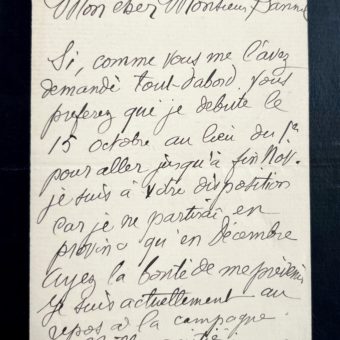 Mon cher Monsieur
Si, comme vous me l'avez
demandé tout d'abord vous
preferez que je debute le
15 octobre au lieu du 1er
pour aller jusqu'à fin Nov.
je suis à votre disposition
car je ne partirai en
province qu'en Décembre
Ayez la bonté de me prévenir
Je suis actuellement au
repos à la campagne.